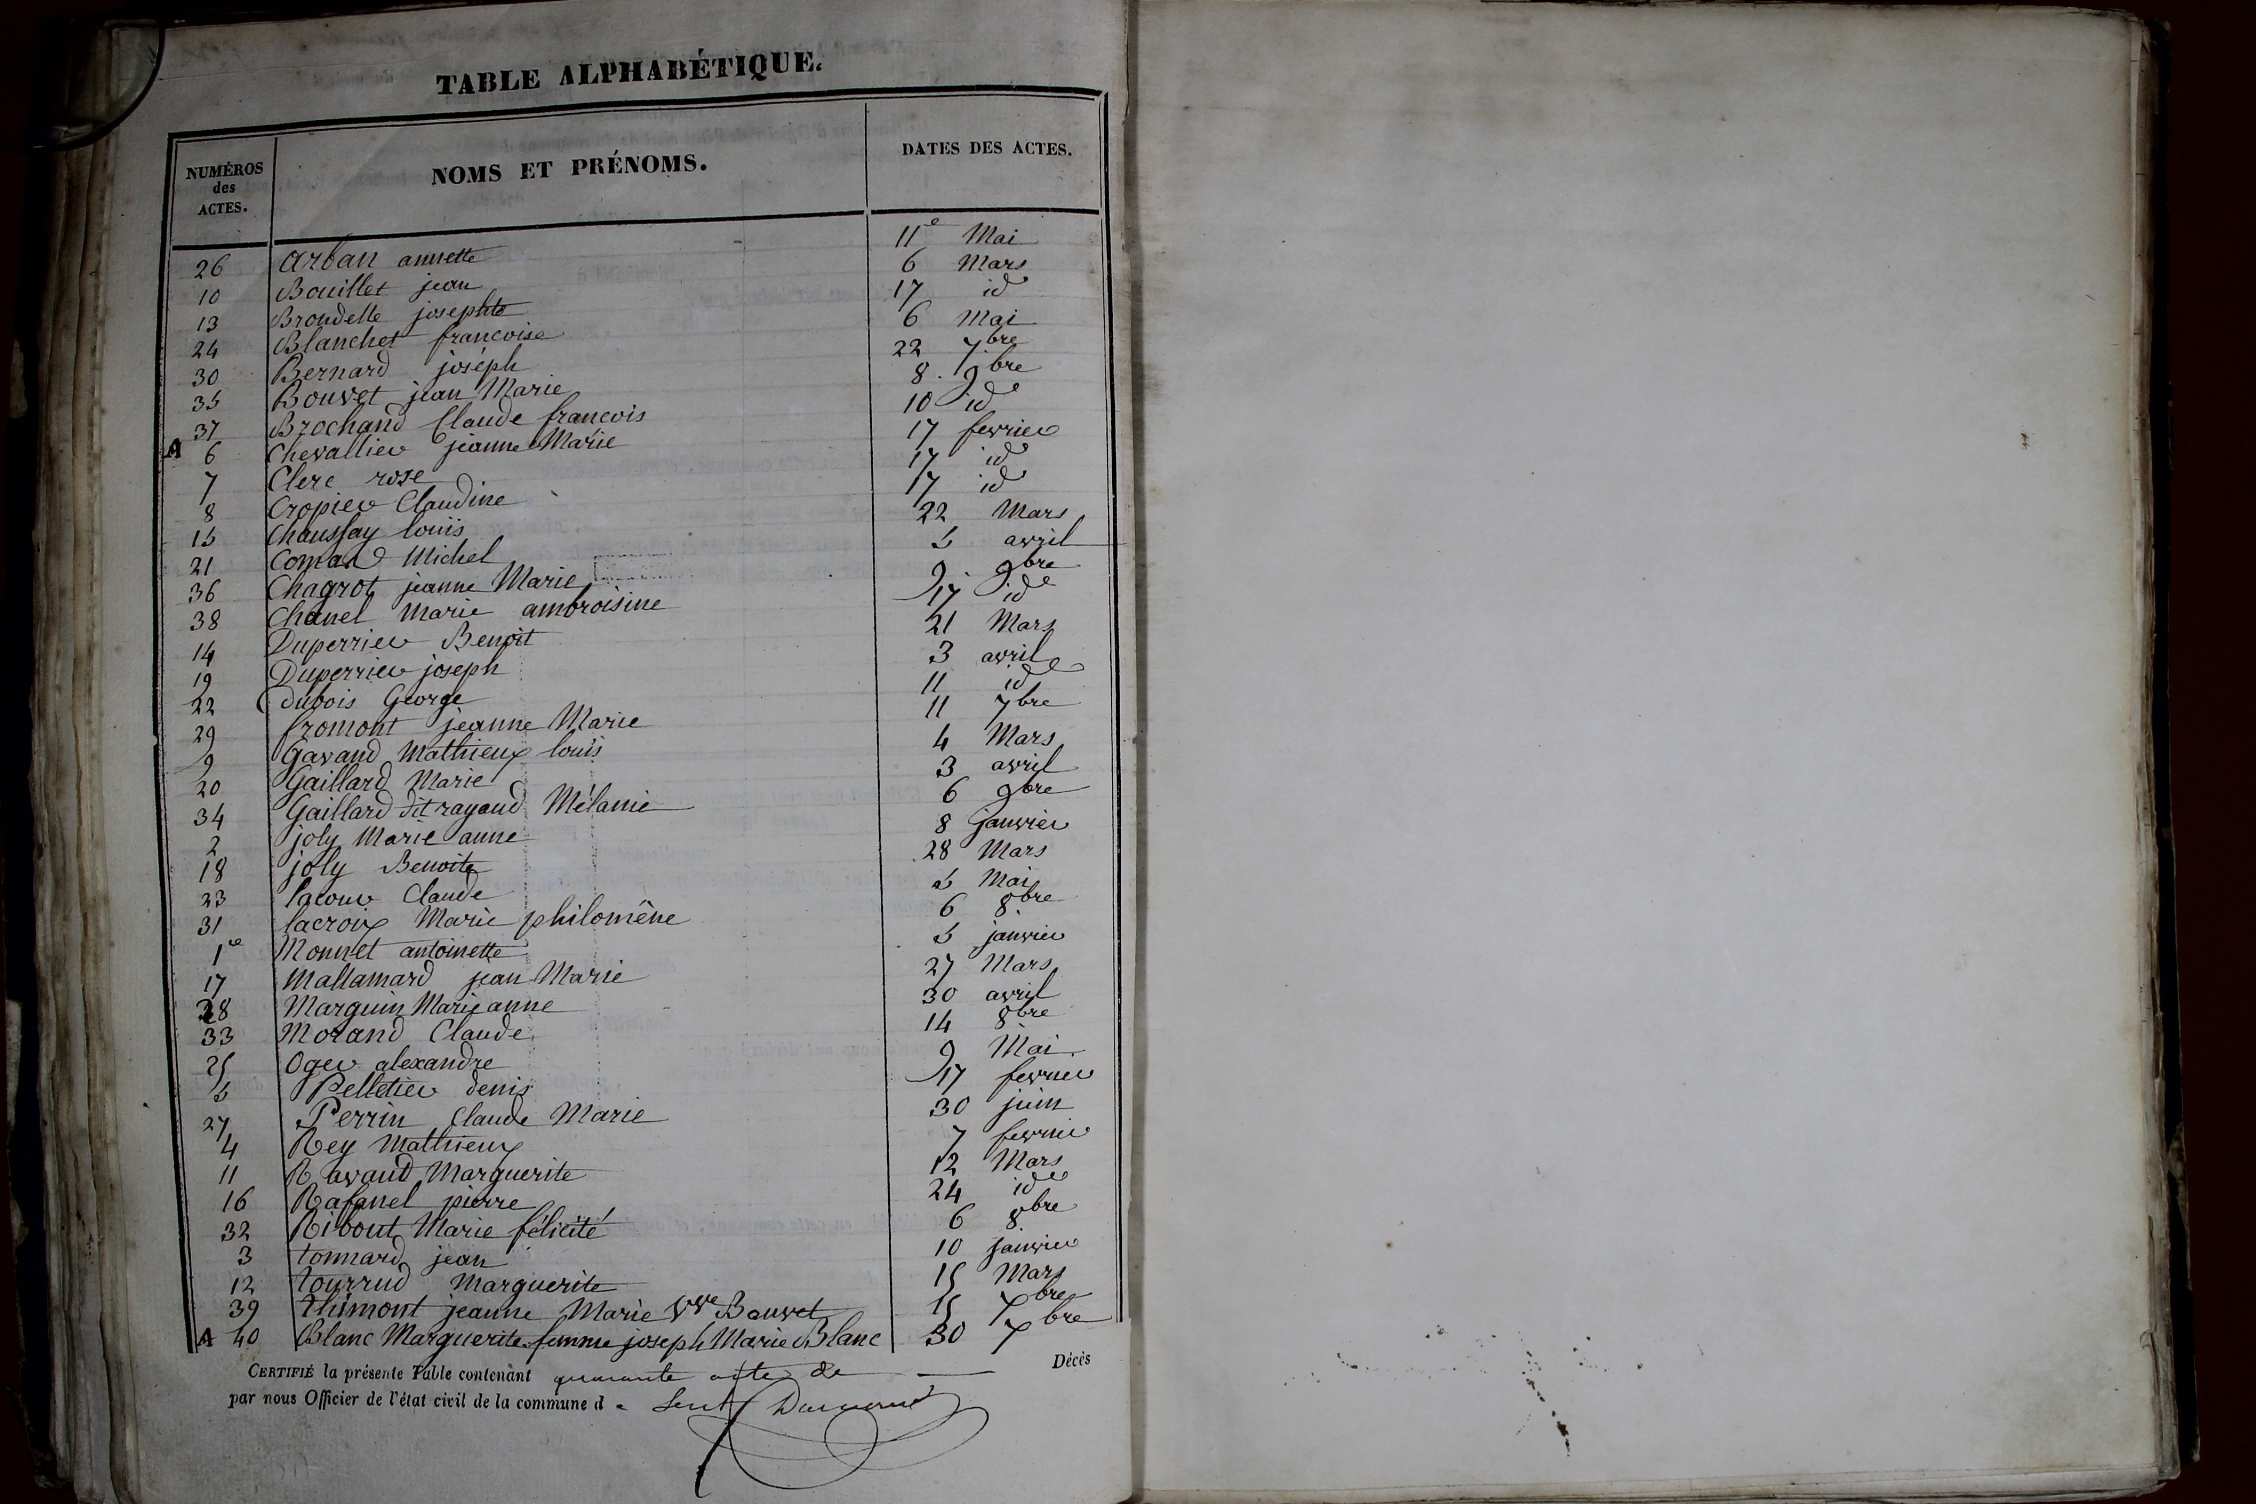 TABLE ALPHABÉTIQUE.
NUMÉROS des ACTES. NOMS ET PRÉNOMS. DATES DES ACTES.
26 Arban annette 11e Mai
10 Bouillet jean 6 Mars
13 Brondelle josephte 17 id
24 Blanchet francoise 6 Mai
30 Bernard joséph 22 7bre
35 Bouvet jean Marie 8 9bre
37 Brochand Claude francois 10 id
A 6 Chevallier jeanne Marie 17 fevrier
7 Clerc rose 17 id
8 Cropier Claudine 17 id
15 Chaussay louis 22 Mars
21 Comard Michel 5 avril
36 Chagrot jeanne Marie 9 9bre
38 Chanel Marie ambroisine 17 id
14 Duperrier Benoit 21 Mars
19 Duperrier joseph 3 avril
22 Dubois George 11 id
29 fromont jeanne Marie 11 7bre
9 Gavand Mathieux louis 4 Mars
20 Gaillard Marie 3 avril
34 Gaillard dit rayaud Mélanie 6 9bre
2 joly Marie anne 8 janvier
18 joly Benoite 28 Mars
23 lacour Claude 5 Mai
31 lacroix Marie philomène 6 8bre
1e Monnet antoinette 5 janvier
17 Mallamard jean Marie 27 Mars
28 Marguin Marie anne 30 avril
33 Morand Claude 14 8bre
25 Oger alexandre 9 Mai
5 Pelletier denis 17 fevrier
27 Perrin Claude Marie 30 juin
4 Rey Mathieux 7 fevrier
11 Ravaud Marguerite 12 Mars
16 Rafanel pierre 24 id
32 Ribout Marie félicité 6 8bre
3 tonnard jean 10 janvier
12 tourrud Marguerite 15 Mars
39 thimont jeanne Marie Vve Bouvet 15 Xbre
A 40 Blanc Marguerite femme joseph Marie Blanc 30 Xbre
CERTIFIÉ la présente Table contenant quarante acte de Décès
par nous Officier de l'état civil de la commune d